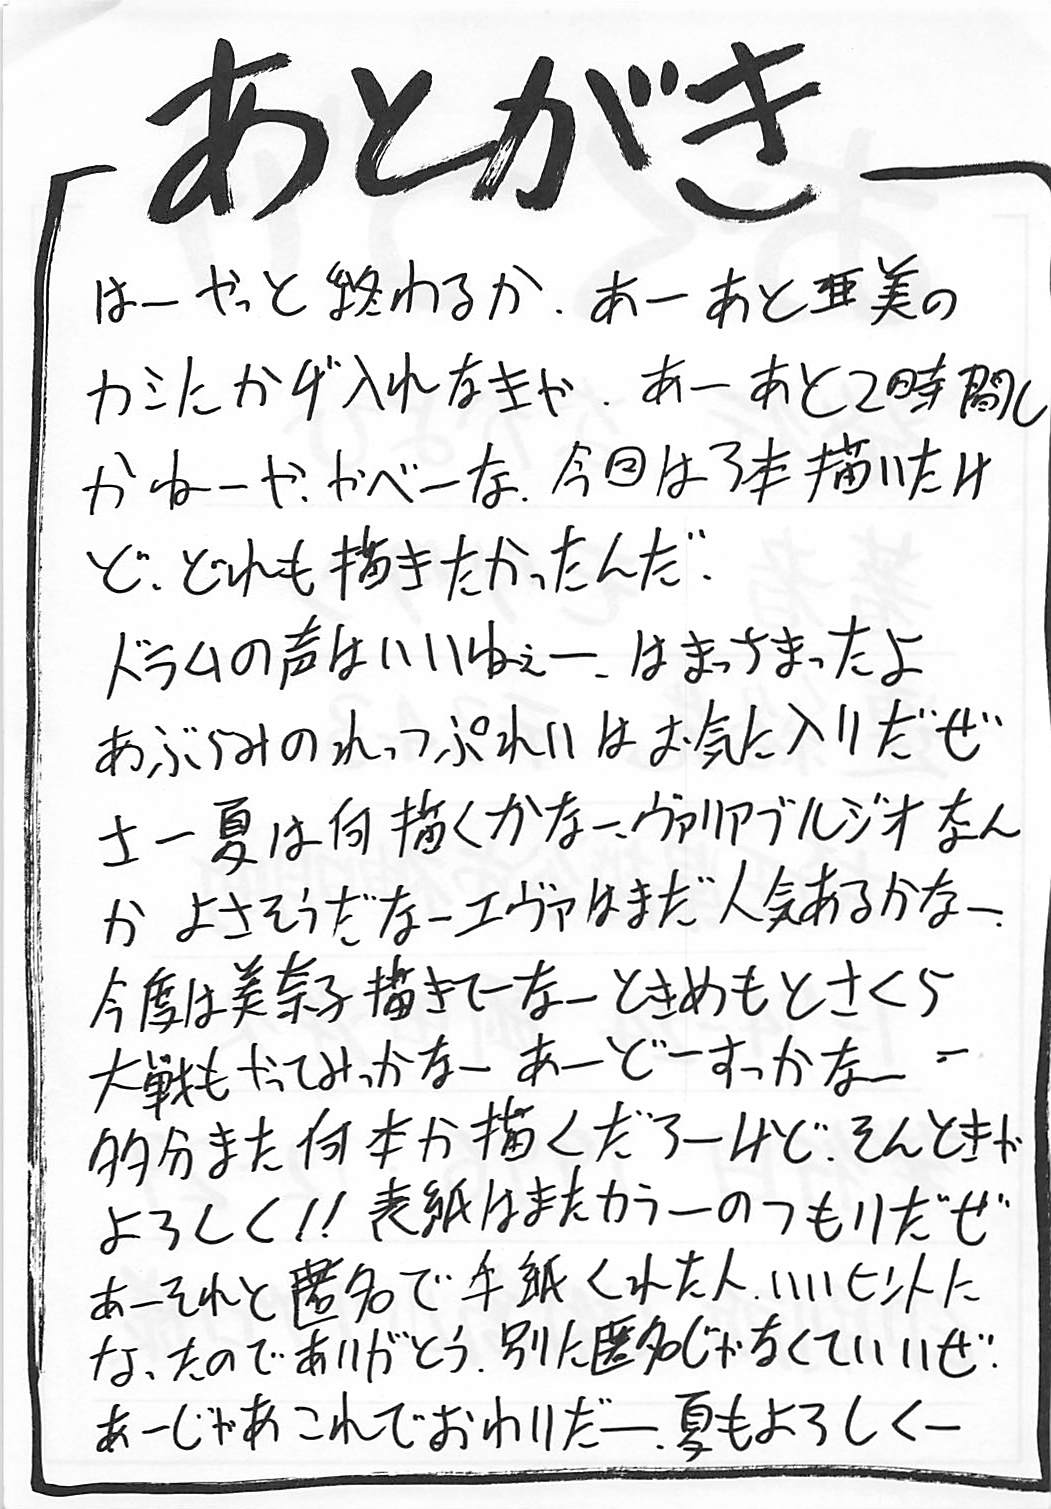 あとがき
はーやっと終わるか.あーあと亜美の
カミにかげ入れなきゃ.あーあと2時間し
かねーや.やべーな.今回は3本描いたけ
ど.どれも描きたかったんだ.
ドラムの声はいいねぇー.はまっちまったよ
あぶらみのれっつぷれいはお気に入りだぜ
さー夏は何描くかなー.ヴァリアブルジオなん
か よさそうだなーエヴァはまだ人気あるかなー.
今度は美奈子描きてーなーときめもとさくら
大戦もやってみっかなー あーどーすっかなー
多分また何本か描くだろーけど.そんときゃ
よろしく!!表紙はまたカラーのつもりだぜ
あーそれと匿名で手紙くれた人.いいヒントに
なったのでありがとう.別に匿名じゃなくていいぜ.
あーじゃあこれでおわりだー.夏もよろしくー